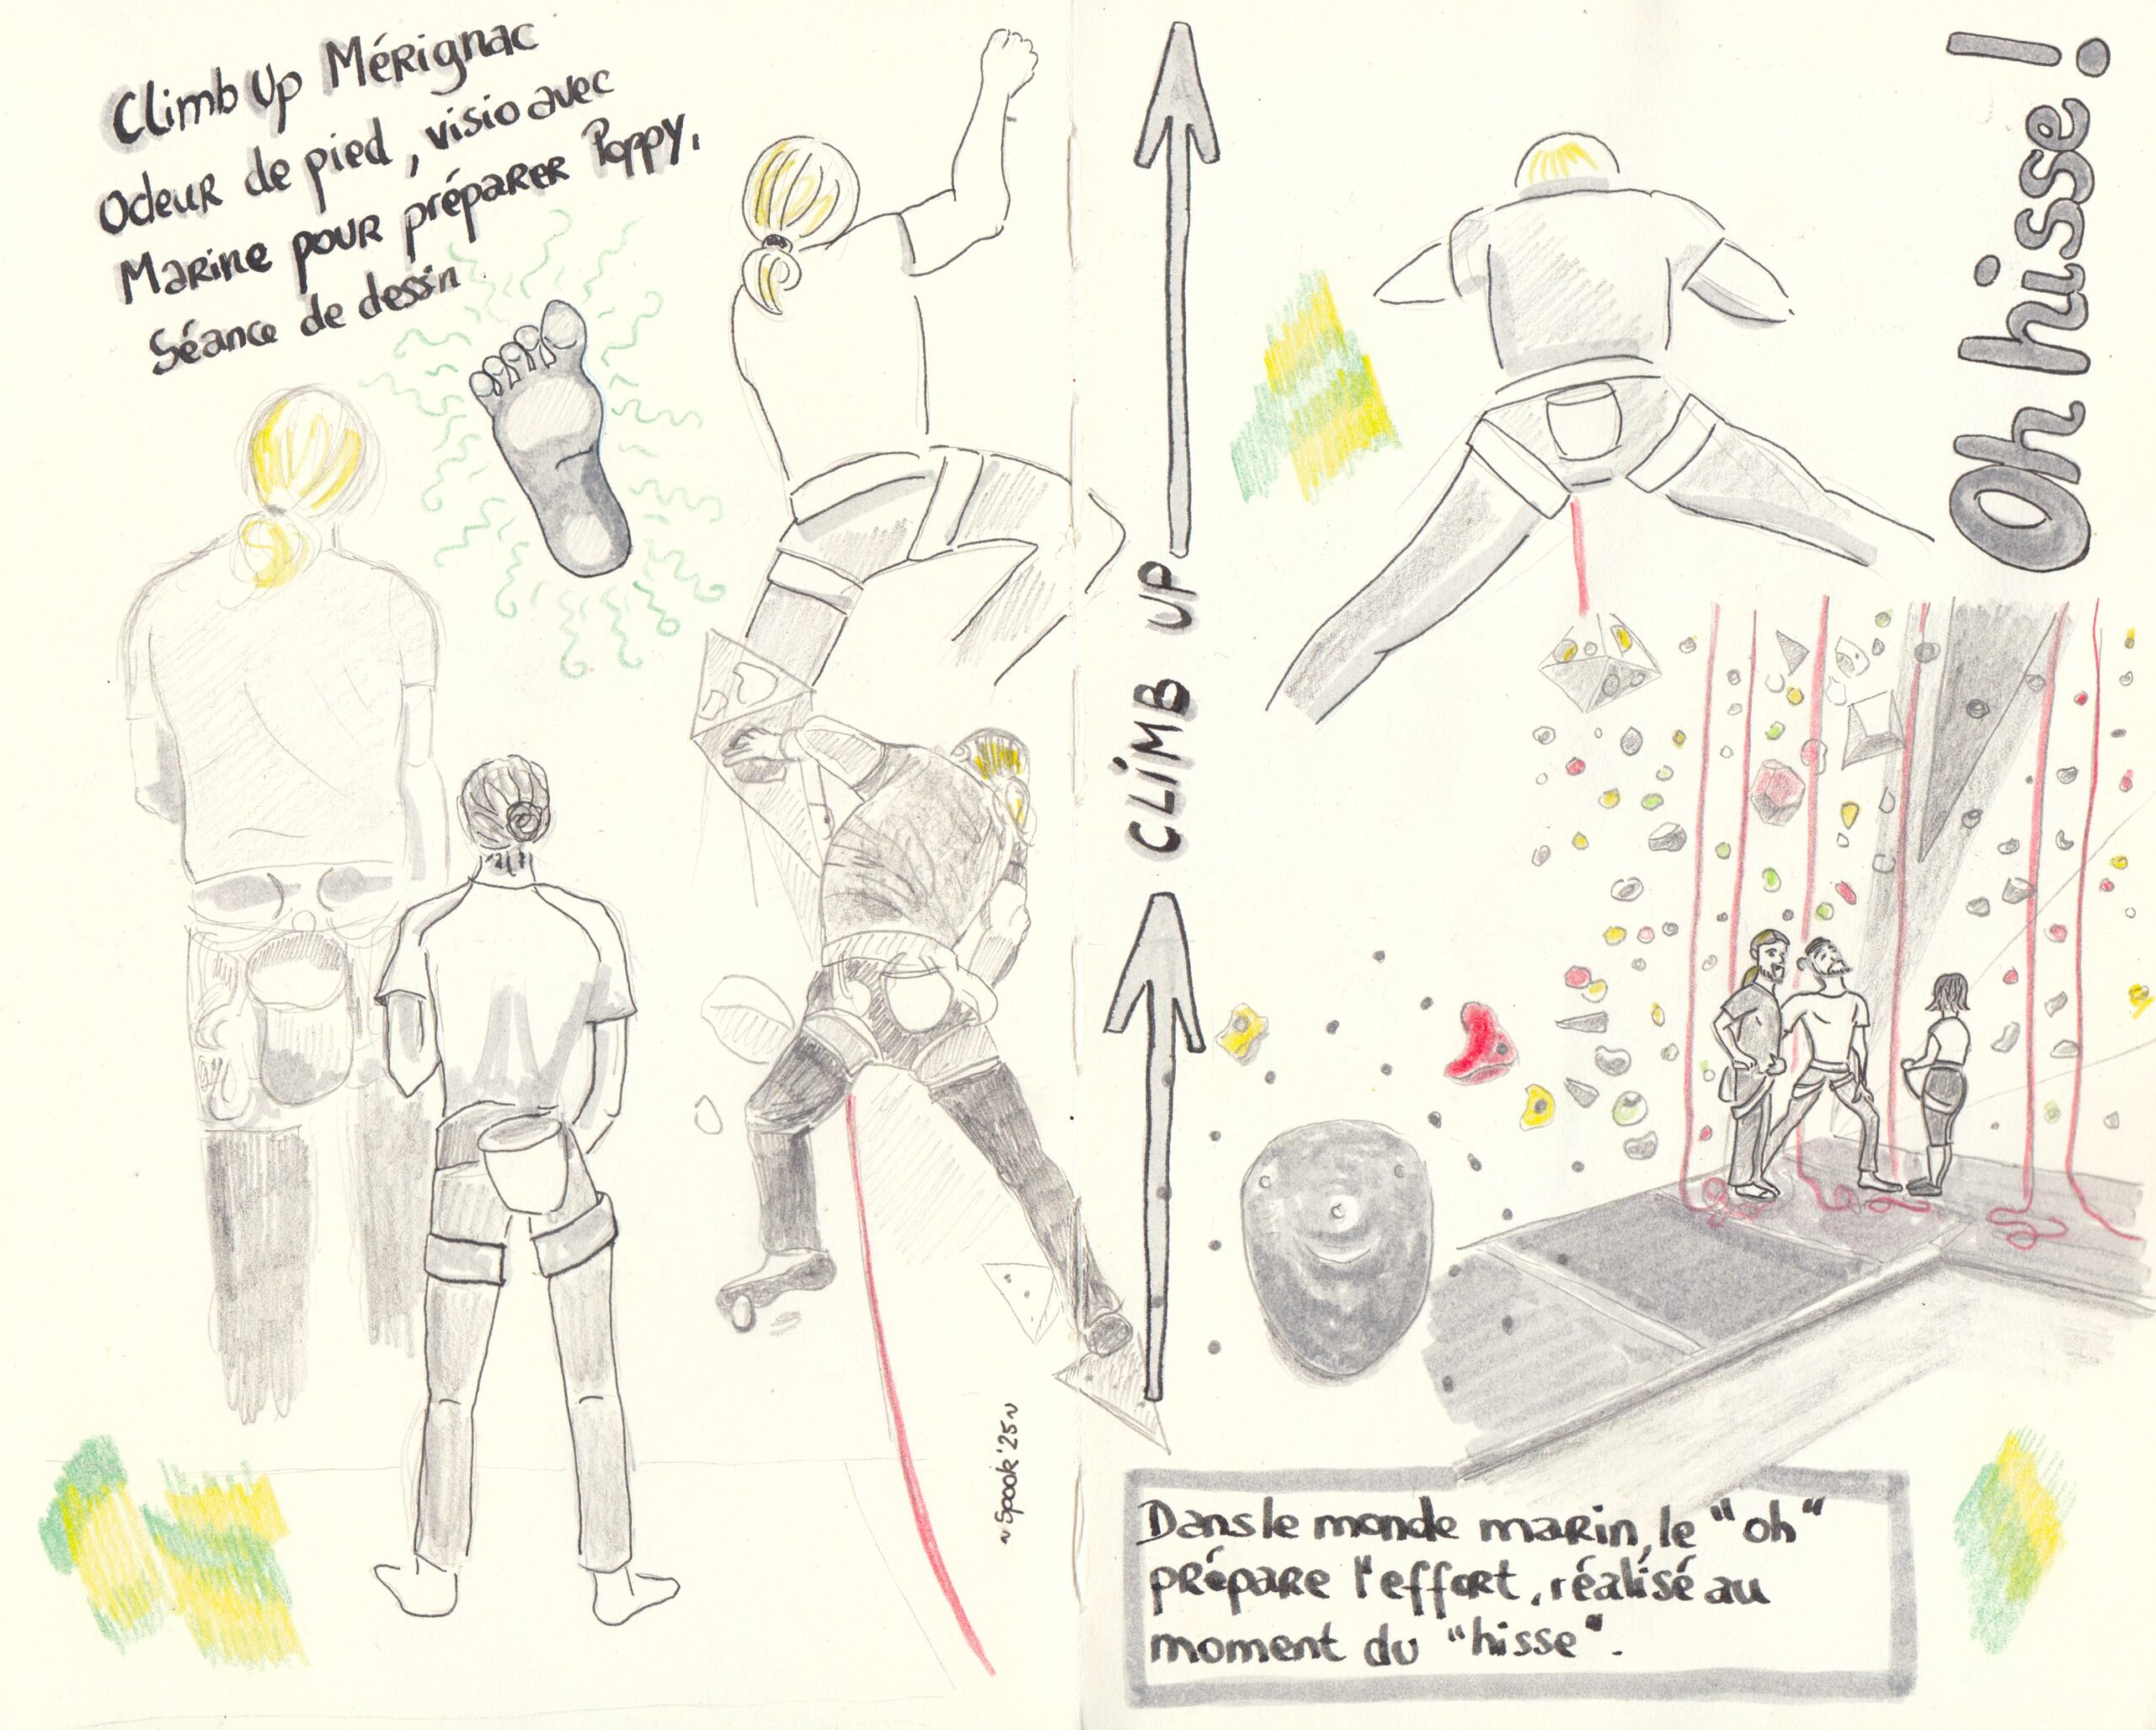 Climb Up Mérignac
Odeur de pied, visio avec
Marine pour préparer Poppy.
Séance de dessin
~ Spook '25 ~
CLIMB UP
Oh hisse!
Dans le monde marin, le "oh"
prépare l'effort, réalisé au
moment du "hisse".